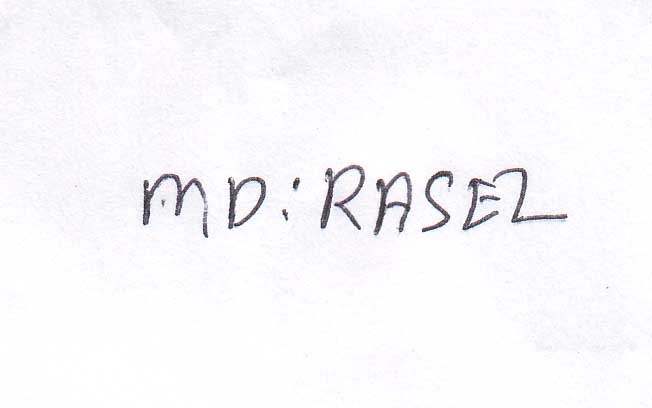 MD: RASEL